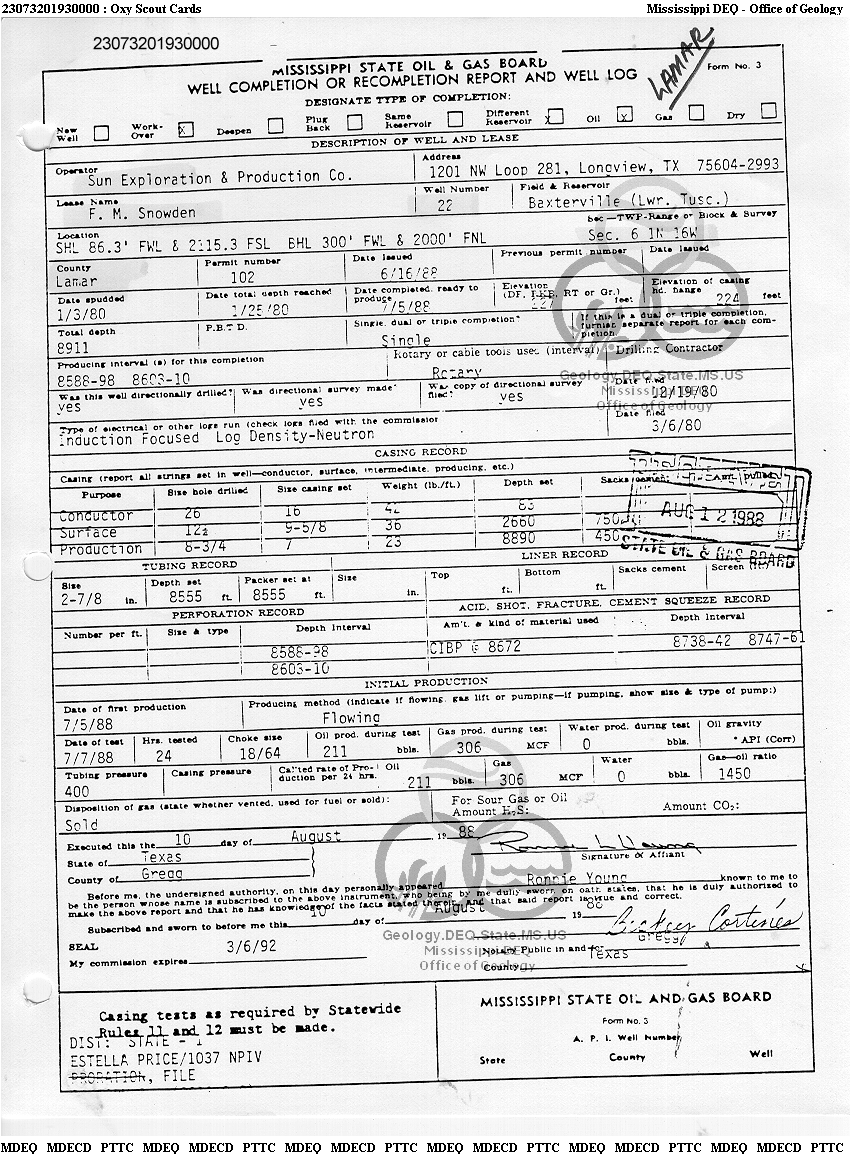 23073201930000 : Oxy Scout Cards Mississippi DEQ - Office of Geology
23073201930000
LAMAR
MISSISSIPPI STATE OIL & GAS BOARD
WELL COMPLETION OR RECOMPLETION REPORT AND WELL LOG Form No. 3
DESIGNATE TYPE OF COMPLETION:
New Well Work-Over X Deepen Plug Back Same Reservoir Different Reservoir X Oil X Gas Dry
DESCRIPTION OF WELL AND LEASE
Operator Sun Exploration & Production Co. Address 1201 NW Loop 281, Longview, TX 75604-2993
Lease Name F. M. Snowden Well Number 22 Field & Reservoir Baxterville (Lwr. Tusc.)
Location SHL 86.3' FWL & 2115.3 FSL BHL 300' FWL & 2000' FNL Sec—TWP-Range or Block & Survey Sec. 6 1N 16W
County Lamar Permit number 102 Date Issued 6/16/88 Previous permit number Date Issued
Date spudded 1/3/80 Date total depth reached 1/25/80 Date completed, ready to produce 7/5/88 Elevation (DF, RKB, RT or Gr.) feet Elevation of casing hd. flange 224 feet
Total depth 8911 P.B.T.D. Single, dual or triple completion? Single If this is a dual or triple completion, furnish separate report for each completion.
Producing interval (s) for this completion 8588-98 8603-10 Rotary or cable tools used (interval) Rotary Drilling Contractor
Was this well directionally drilled? yes Was directional survey made? yes Was copy of directional survey filed? yes Date filed 12/19/80
Type of electrical or other logs run (check logs filed with the commission Induction Focused Log Density-Neutron Date filed 3/6/80
CASING RECORD
Casing (report all strings set in well—conductor, surface, intermediate, producing, etc.)
Purpose Size hole drilled Size casing set Weight (lb./ft.) Depth set Sacks cement Amt. pulled
Conductor 26 16 42 83
Surface 12½ 9-5/8 36 2660 750
Production 8-3/4 7 23 8890 450
AUG 12 1988
STATE OIL & GAS BOARD
TUBING RECORD LINER RECORD
Size 2-7/8 in. Depth set 8555 ft. Packer set at 8555 ft. Size in. Top ft. Bottom ft. Sacks cement Screen
PERFORATION RECORD ACID, SHOT, FRACTURE, CEMENT SQUEEZE RECORD
Number per ft. Size & type Depth Interval Am't. & kind of material used Depth Interval
8588-98 CIBP @ 8672 8738-42 8747-61
8603-10
INITIAL PRODUCTION
Date of first production 7/5/88 Producing method (indicate if flowing, gas lift or pumping—if pumping, show size & type of pump:) Flowing
Date of test 7/7/88 Hrs. tested 24 Choke size 18/64 Oil prod. during test 211 bbls. Gas prod. during test 306 MCF Water prod. during test 0 bbls. Oil gravity ° API (Corr)
Tubing pressure 400 Casing pressure Cal'ted rate of Production per 24 hrs. Oil 211 bbls. Gas 306 MCF Water 0 bbls. Gas—oil ratio 1450
Disposition of gas (state whether vented, used for fuel or sold): Sold For Sour Gas or Oil Amount H2S: Amount CO2:
Executed this the 10 day of August 19 88
State of Texas Signature of Affiant
County of Gregg
Before me, the undersigned authority, on this day personally appeared Ronnie Young known to me to
be the person whose name is subscribed to the above instrument, who being by me duly sworn on oath states, that he is duly authorized to
make the above report and that he has knowledge of the facts stated therein, and that said report is true and correct.
Subscribed and sworn to before me this 10 day of August 19 88
SEAL Gregg
My commission expires 3/6/92 Notary Public in and for Texas
County
Geology.DEQ.State.MS.US
Mississippi DEQ
Office of Geology
Casing tests as required by Statewide
Rules 11 and 12 must be made.
DIST: STATE - 1
ESTELLA PRICE/1037 NPIV
PRORATION, FILE
MISSISSIPPI STATE OIL AND GAS BOARD
Form No. 3
A. P. I. Well Number
State County Well
MDEQ MDECD PTTC MDEQ MDECD PTTC MDEQ MDECD PTTC MDEQ MDECD PTTC MDEQ MDECD PTTC MDEQ MDECD PTTC